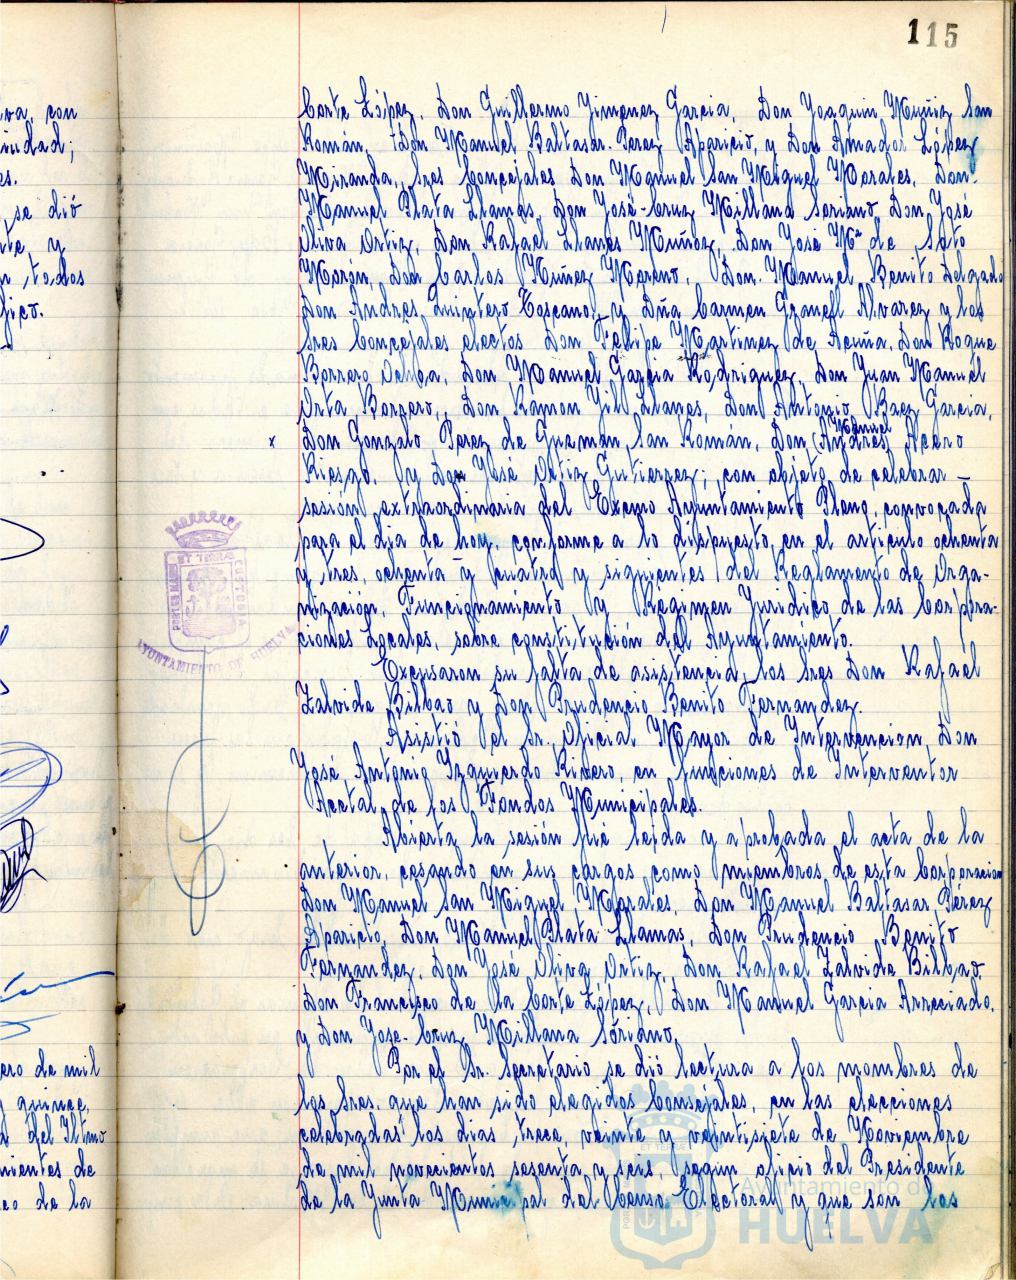 115
Corte López, Don Guillermo Jimenez Garcia, Don Joaquin Muñiz San
Román, Don Manuel Baltasar Perez Aparicio, y Don Amador López
Miranda, Sres Concejales Don Manuel San Miguel Morales, Don
Manuel Plata Llamas, Don José-Cruz Millana Soriano, Don José
Oliva Ortiz, Don Rafael Llanes Muñoz, Don José Mª de Soto
Morón, Don Carlos Nuñez Moreno, Don Manuel Benito Delgado
Don Andres Quintero Toscano, y Dña Carmen Granell Alvarez y los
Sres Concejales electos Don Felipe Martinez de Acuña, Don Roque
Borrero Ochoa, Don Manuel Garcia Rodriguez, Don Juan Manuel
Orta Borrero, Don Ramon Gil Llanes, Don Antonio Baez Garcia,
Manuel
x Don Gonzalo Perez de Guzmán San Román, Don (Andres) Acero
Riesgo, y Don José Ortiz Gutierrez; con objeto de celebrar
sesión extraordinaria del Excmo Ayuntamiento Pleno, convocada
para el dia de hoy, conforme a lo dispuesto en el articulo ochenta
y tres, ochenta y cuatro y siguientes del Reglamento de Orga-
nización, Funcionamiento y Régimen Juridico de las Corpora-
ciones Locales, sobre constitución del Ayuntamiento.
Excusaron su falta de asistencia los Sres Don Rafael
Zalvide Bilbao y Don Prudencio Benito Fernandez.
Asistió el Sr. Oficial Mayor de Intervencion, Don
José Antonio Izquierdo Rivero, en funciones de Interventor
Acctal de los Fondos Municipales.
Abierta la sesión fué leida y aprobada el acta de la
anterior, cesando en sus cargos como miembros de esta Corporacion
Don Manuel San Miguel Morales, Don Manuel Baltasar Pérez
Aparicio, Don Manuel Plata Llamas, Don Prudencio Benito
Fernandez, Don José Oliva Ortiz, Don Rafael Zalvide Bilbao,
Don Francisco de la Corte López, Don Manuel Garcia Arreciado,
y Don Jose-Cruz Millana Soriano.
Por el Sr. Secretario se dió lectura a los nombres de
los Sres. que han sido elegidos Concejales, en las elecciones
celebradas los dias trece, veinte y veintisiete de Noviembre
de mil novecientos sesenta y seis segun oficio del Presidente
de la Junta Municipal del Censo Electoral y que son los
AYUNTAMIENTO DE HUELVA
PORTUS MARIS ET TERRAE CUSTODIA
va, con
es.
se dió
y
todos
ero de mil
quince,
del Iltmo
de
de la
Ayuntamiento de
HUELVA